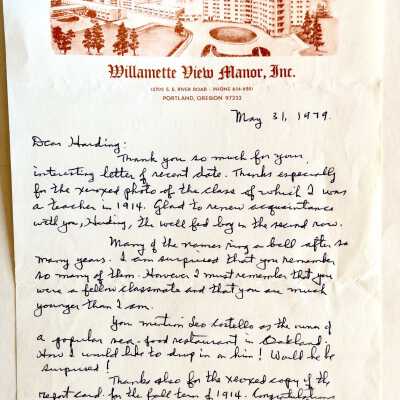 Willamette View Manor, Inc.
12705 S. E. RIVER ROAD · PHONE 654-6581
PORTLAND, OREGON 97222
May 31, 1979.
Dear Harding:
Thank you so much for your
interesting letter of recent date. Thanks especially
for the xeroxed photo of the class of which I was
a teacher in 1914. Glad to renew acquaintance
with you, Harding, the well fed boy in the second row.
Many of the names ring a bell after so
many years. I am surprised that you remember
so many of them. However I must remember that you
were a fellow classmate and that you are much
younger than I am.
You mention Leo Costello as the owner of
a popular sea-food restaurant in Oakland.
How I would like to drop in on him! Would he be
surprised!
Thanks also for the xeroxed copy of the
report card for the fall term of 1914. Congratulations